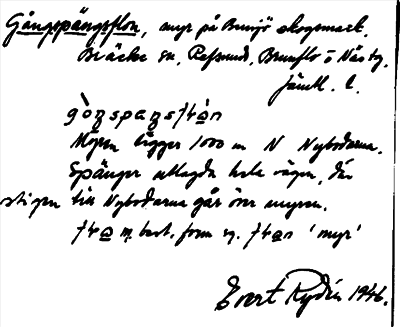 Gångspängsflon, myr på Bensjö skogsmark,
Bräcke sn, Refsunds, Brunflo o Näs tg,
Jämtl. l.
gòŋspaŋsflòn
Myren ligger 1000 m N Nybodarna.
Spänger utlagda hela vägen, där
stigen till Nybodarna går över myren.
best. form sg. 'myr'
Evert Rydén 1946.